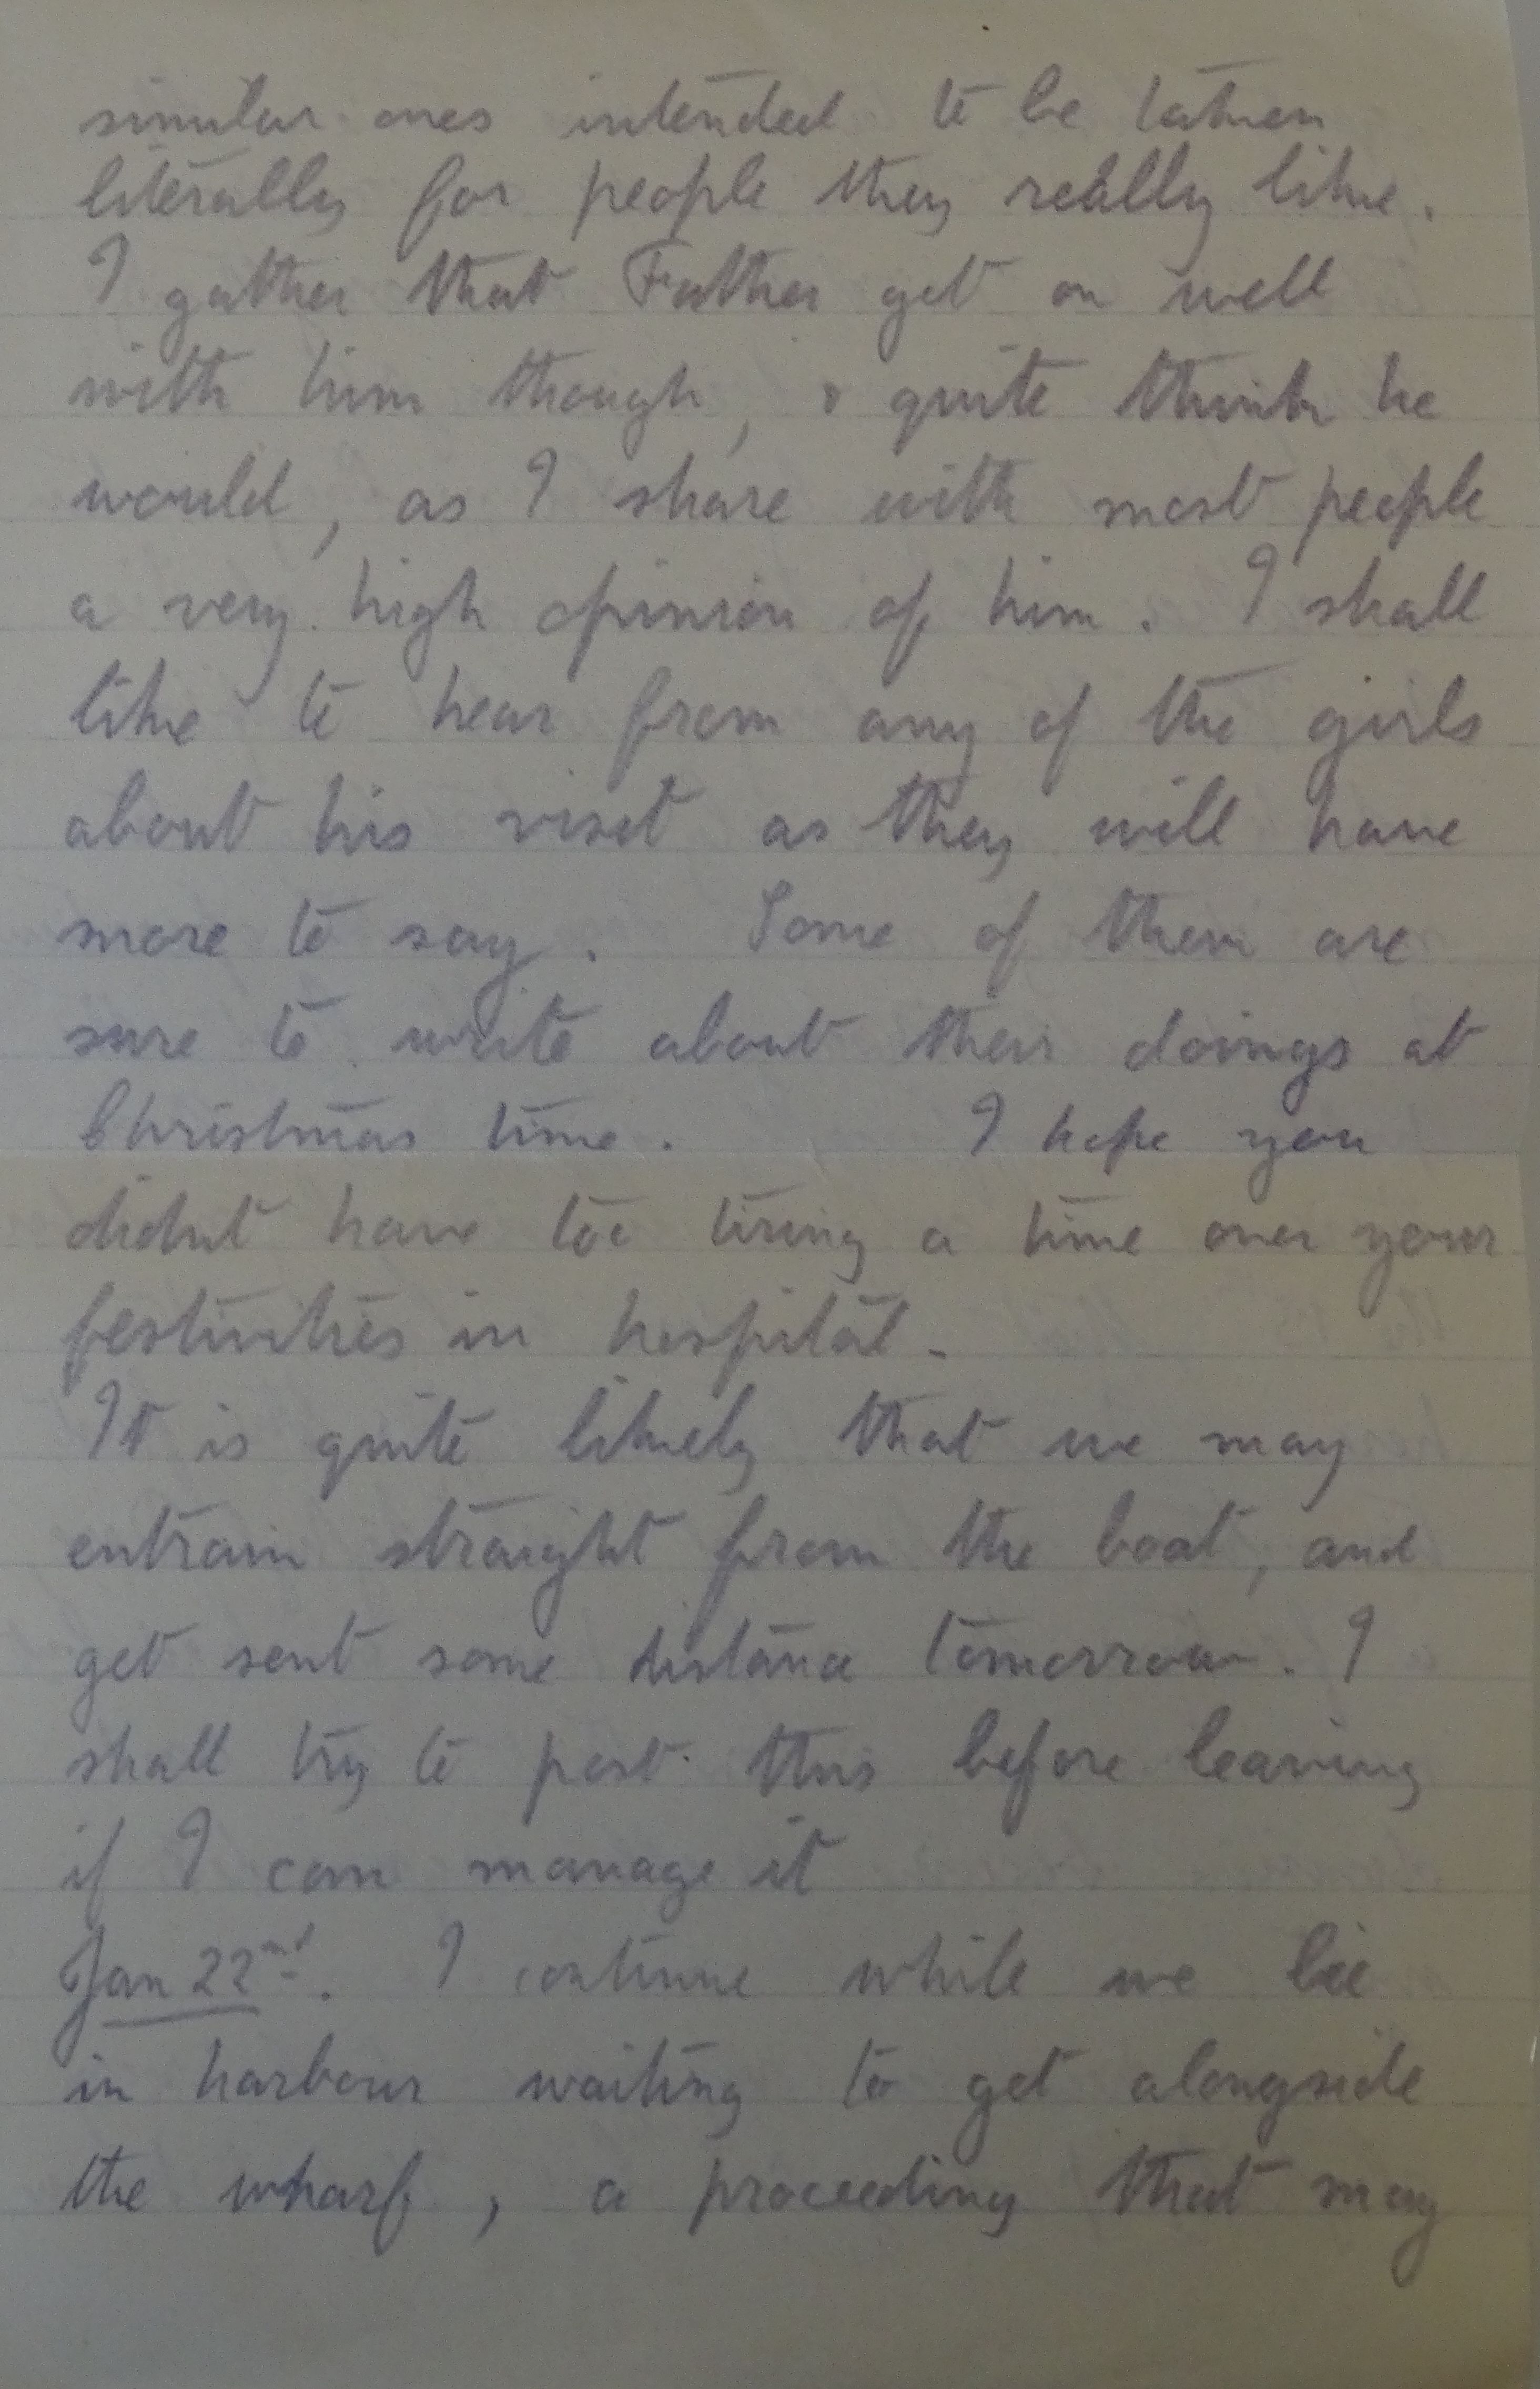 similar ones intended to be taken
literally for people they really like.
I gather that Father got on well
with him though, & quite think he
would, as I share with most people
a very high opinion of him. I shall
like to hear from any of the girls
about his visit as they will have
more to say. Some of them are
sure to write about their doings at
Christmas time. I hope you
didnt have too tiring a time over your
festivities in hospital.
It is quite likely that we may
entrain straight from the boat, and
get sent some distance tomorrow. I
shall try to post this before leaving
if I can manage it
Jan 22nd. I continue while we lie
in harbour waiting to get alongside
the wharf, a proceeding that may